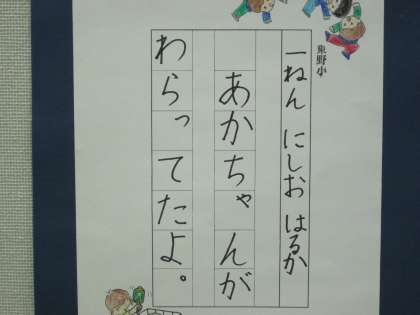 東野小
一ねん にしお はるか
あかちゃんが
わらってたよ。